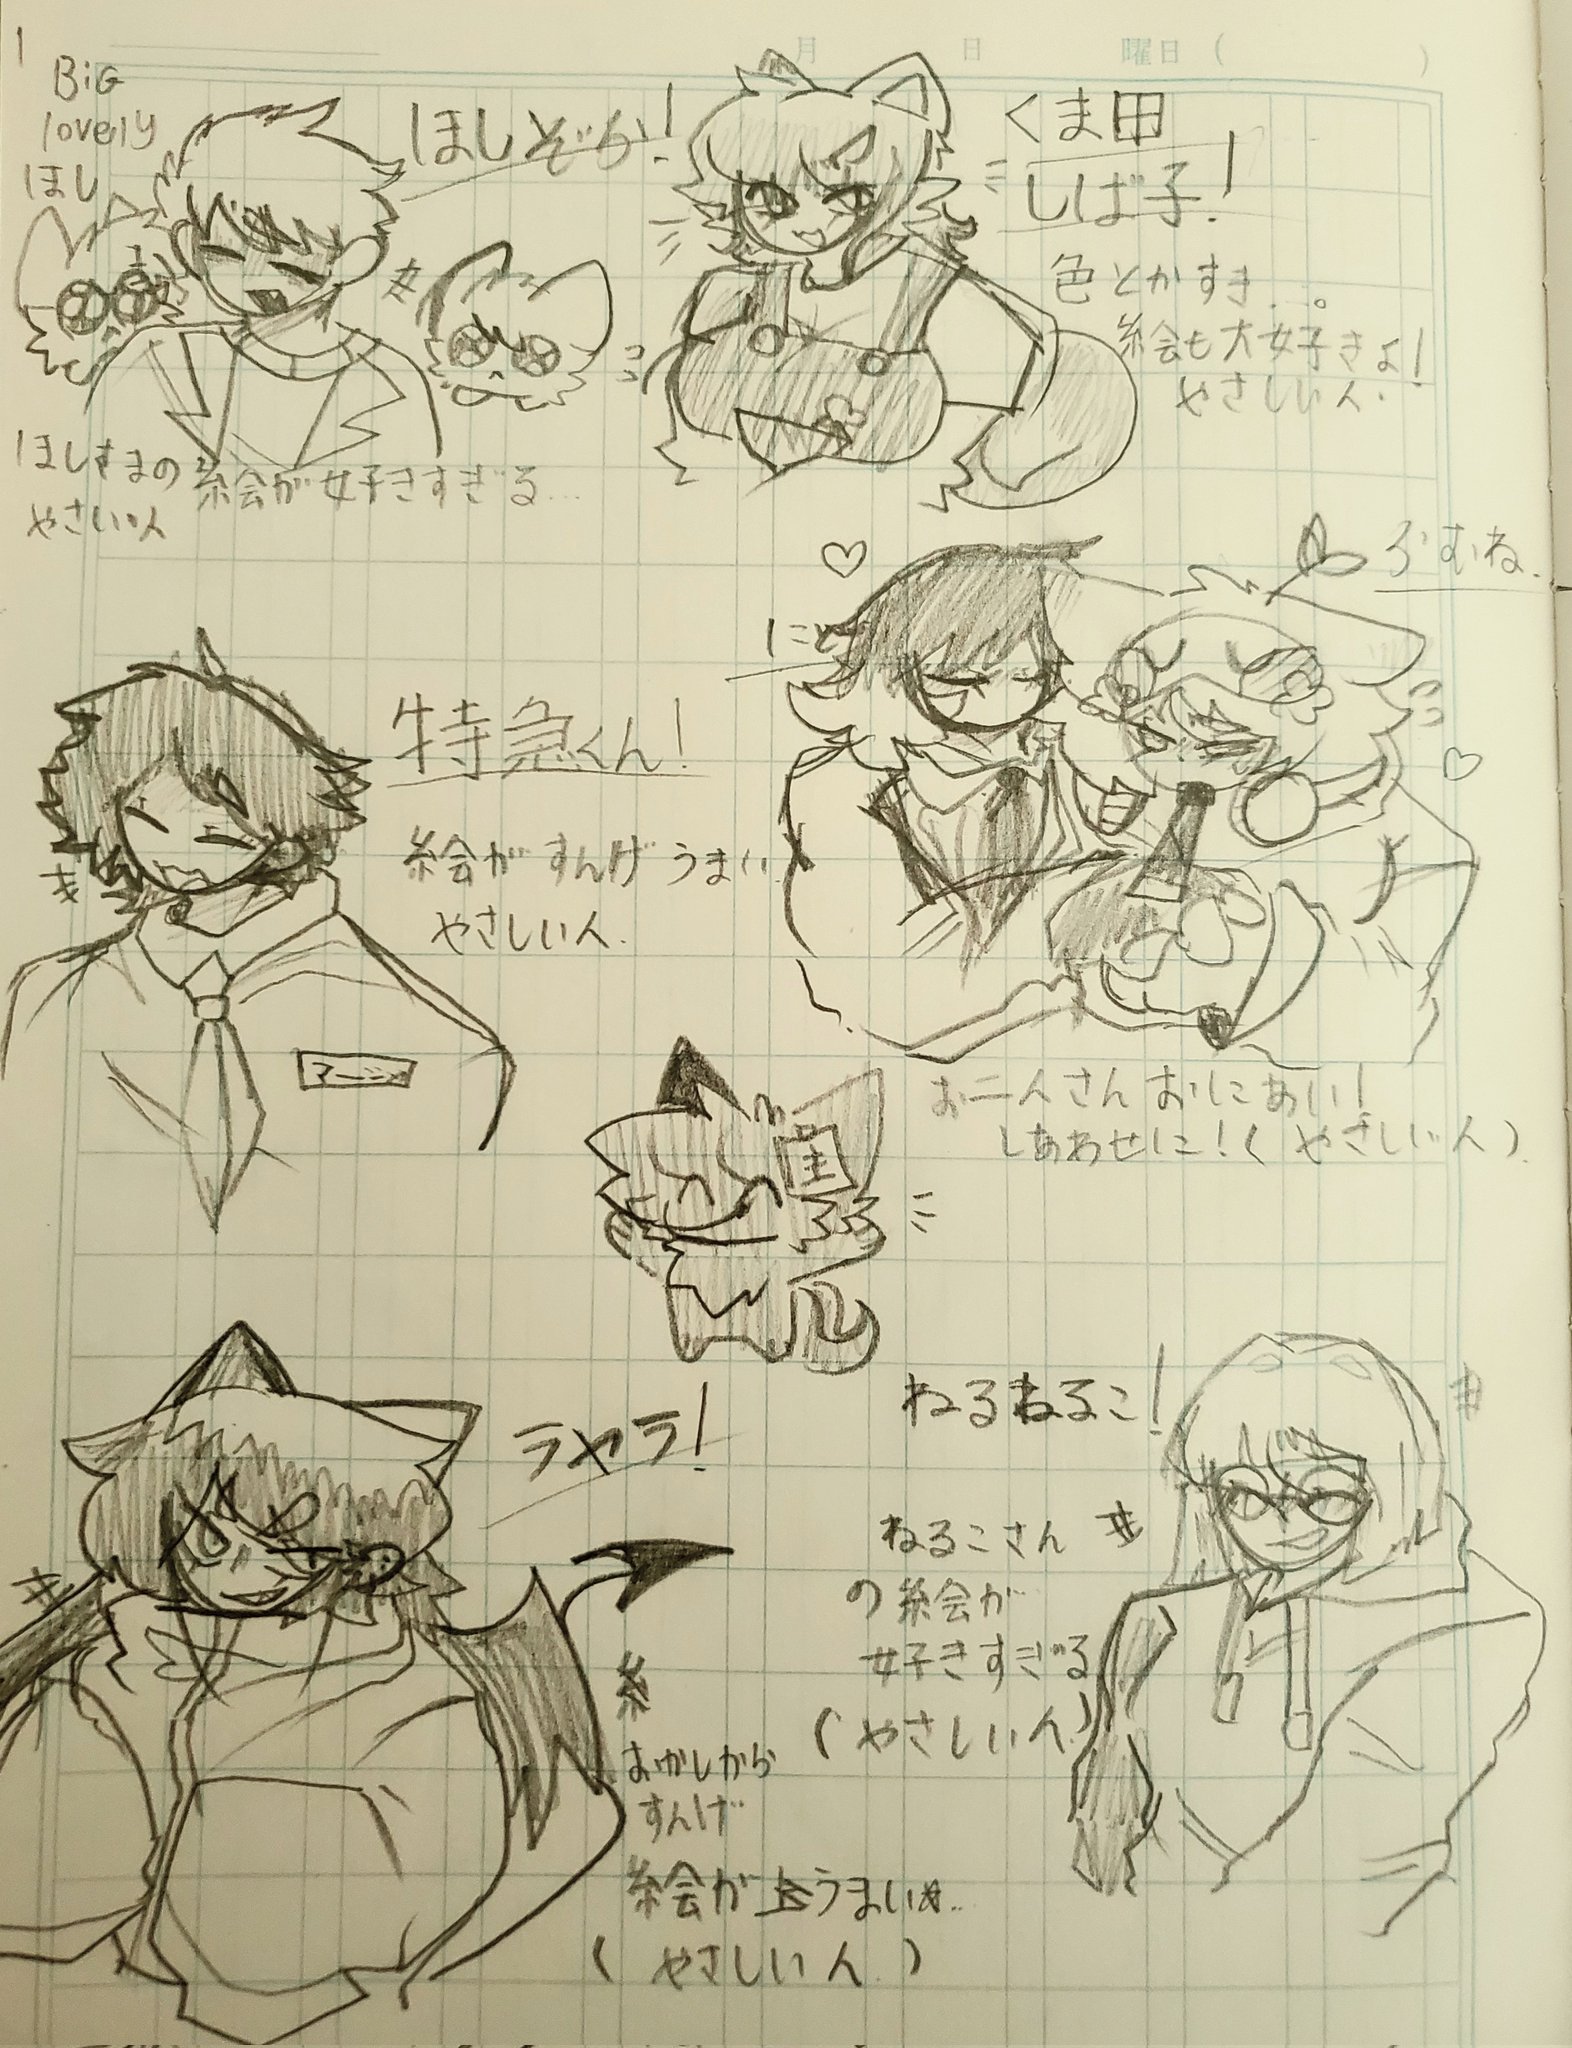 1
月 日 曜日( )
BiG
lovely
ほし
ほしぞら!
ほしずまの 絵が好きすぎる...
やさしい人
くま田
しば子!
色とかすき...。
絵も大好きよ!
やさしい人.
らむね.
にと
お二人さんおにあい!
しあわせに!(やさしい人).
特急くん!
絵がすんげうまい.
やさしい人.
主
ラヤラ!
糸
おかしから
すんげ
絵がうまい..
(やさしい人.)
ねるねるこ!
ねるこさん
の絵が
好きすぎる
(やさしい人.)